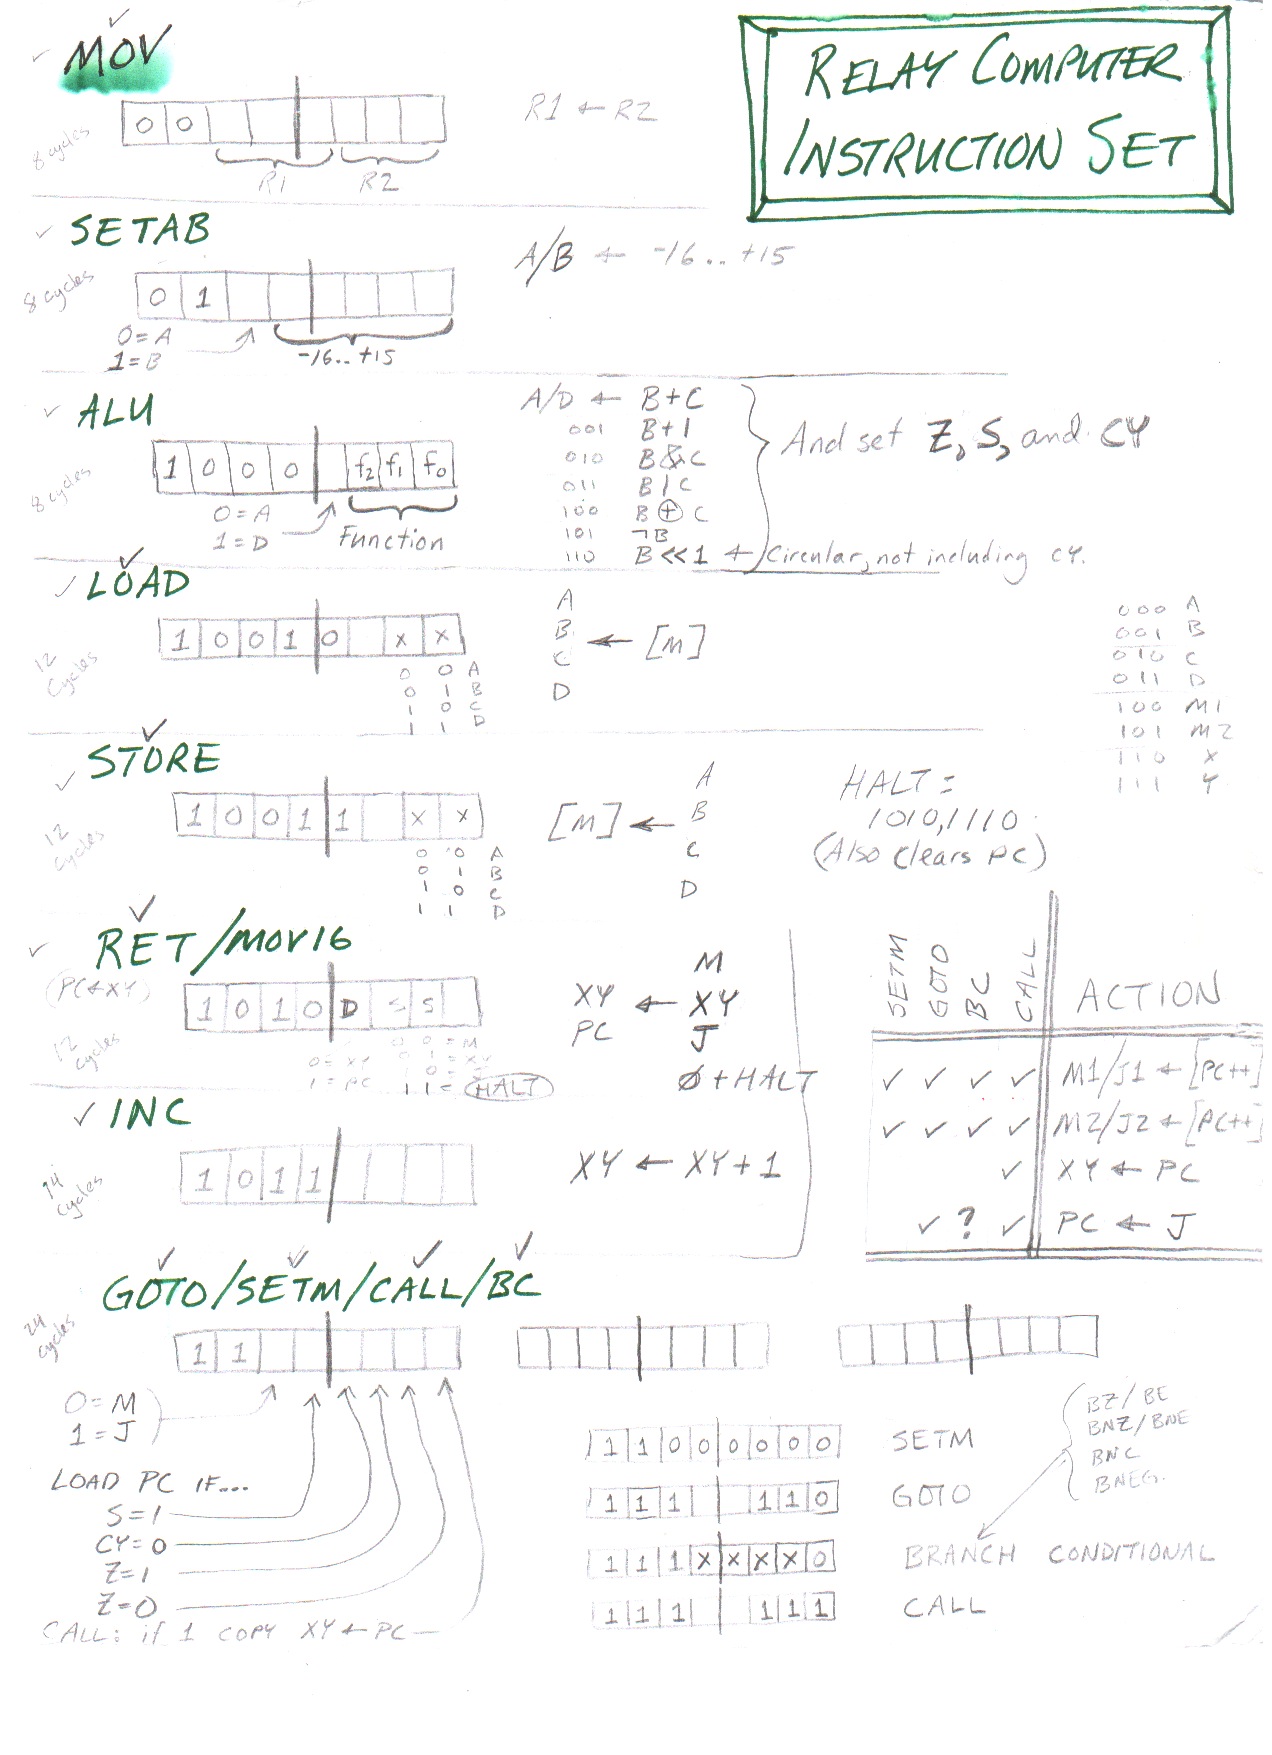 RELAY COMPUTER
INSTRUCTION SET
MOV
8 cycles
0 0
R1 R2
R1 ← R2
SETAB
8 cycles
0 1
0=A
1=B
-16..+15
A/B ← -16..+15
ALU
8 cycles
1 0 0 0 f2 f1 f0
0=A
1=D
Function
A/D ← B+C
001 B+1
010 B&C
011 B|C
100 B⊕C
101 ¬B
110 B<<1 ← Circular, not including CY.
And set Z, S, and CY
LOAD
12 cycles
1 0 0 1 0 x x
0 0 A
0 1 B
1 0 C
1 1 D
A
B
C
D
← [M]
000 A
001 B
010 C
011 D
100 M1
101 M2
110 X
111 Y
STORE
12 cycles
1 0 0 1 1 x x
0 0 A
0 1 B
1 0 C
1 1 D
[M] ←
A
B
C
D
HALT =
1010,1110
(Also clears PC)
RET/MOV16
(PC←XY)
12 cycles
1 0 1 0 D S S
0=XY
1=PC
0 0 = M
0 1 = XY
1 1 = HALT
XY
PC
←
M
XY
J
Ø + HALT
INC
14 cycles
1 0 1 1
XY ← XY+1
SETM GOTO BC CALL ACTION
✓ ✓ ✓ ✓ M1/J1 ← [PC++]
✓ ✓ ✓ ✓ M2/J2 ← [PC++]
✓ XY ← PC
✓ ? ✓ PC ← J
GOTO/SETM/CALL/BC
24 cycles
1 1
0=M
1=J
LOAD PC IF....
S=1
CY=0
Z=1
Z=0
CALL: if 1 COPY XY←PC
1 1 0 0 0 0 0 0 SETM
1 1 1 1 1 0 GOTO
1 1 1 x x x x 0 BRANCH CONDITIONAL
1 1 1 1 1 1 CALL
BZ/BE
BNZ/BNE
BNC
BNEG.